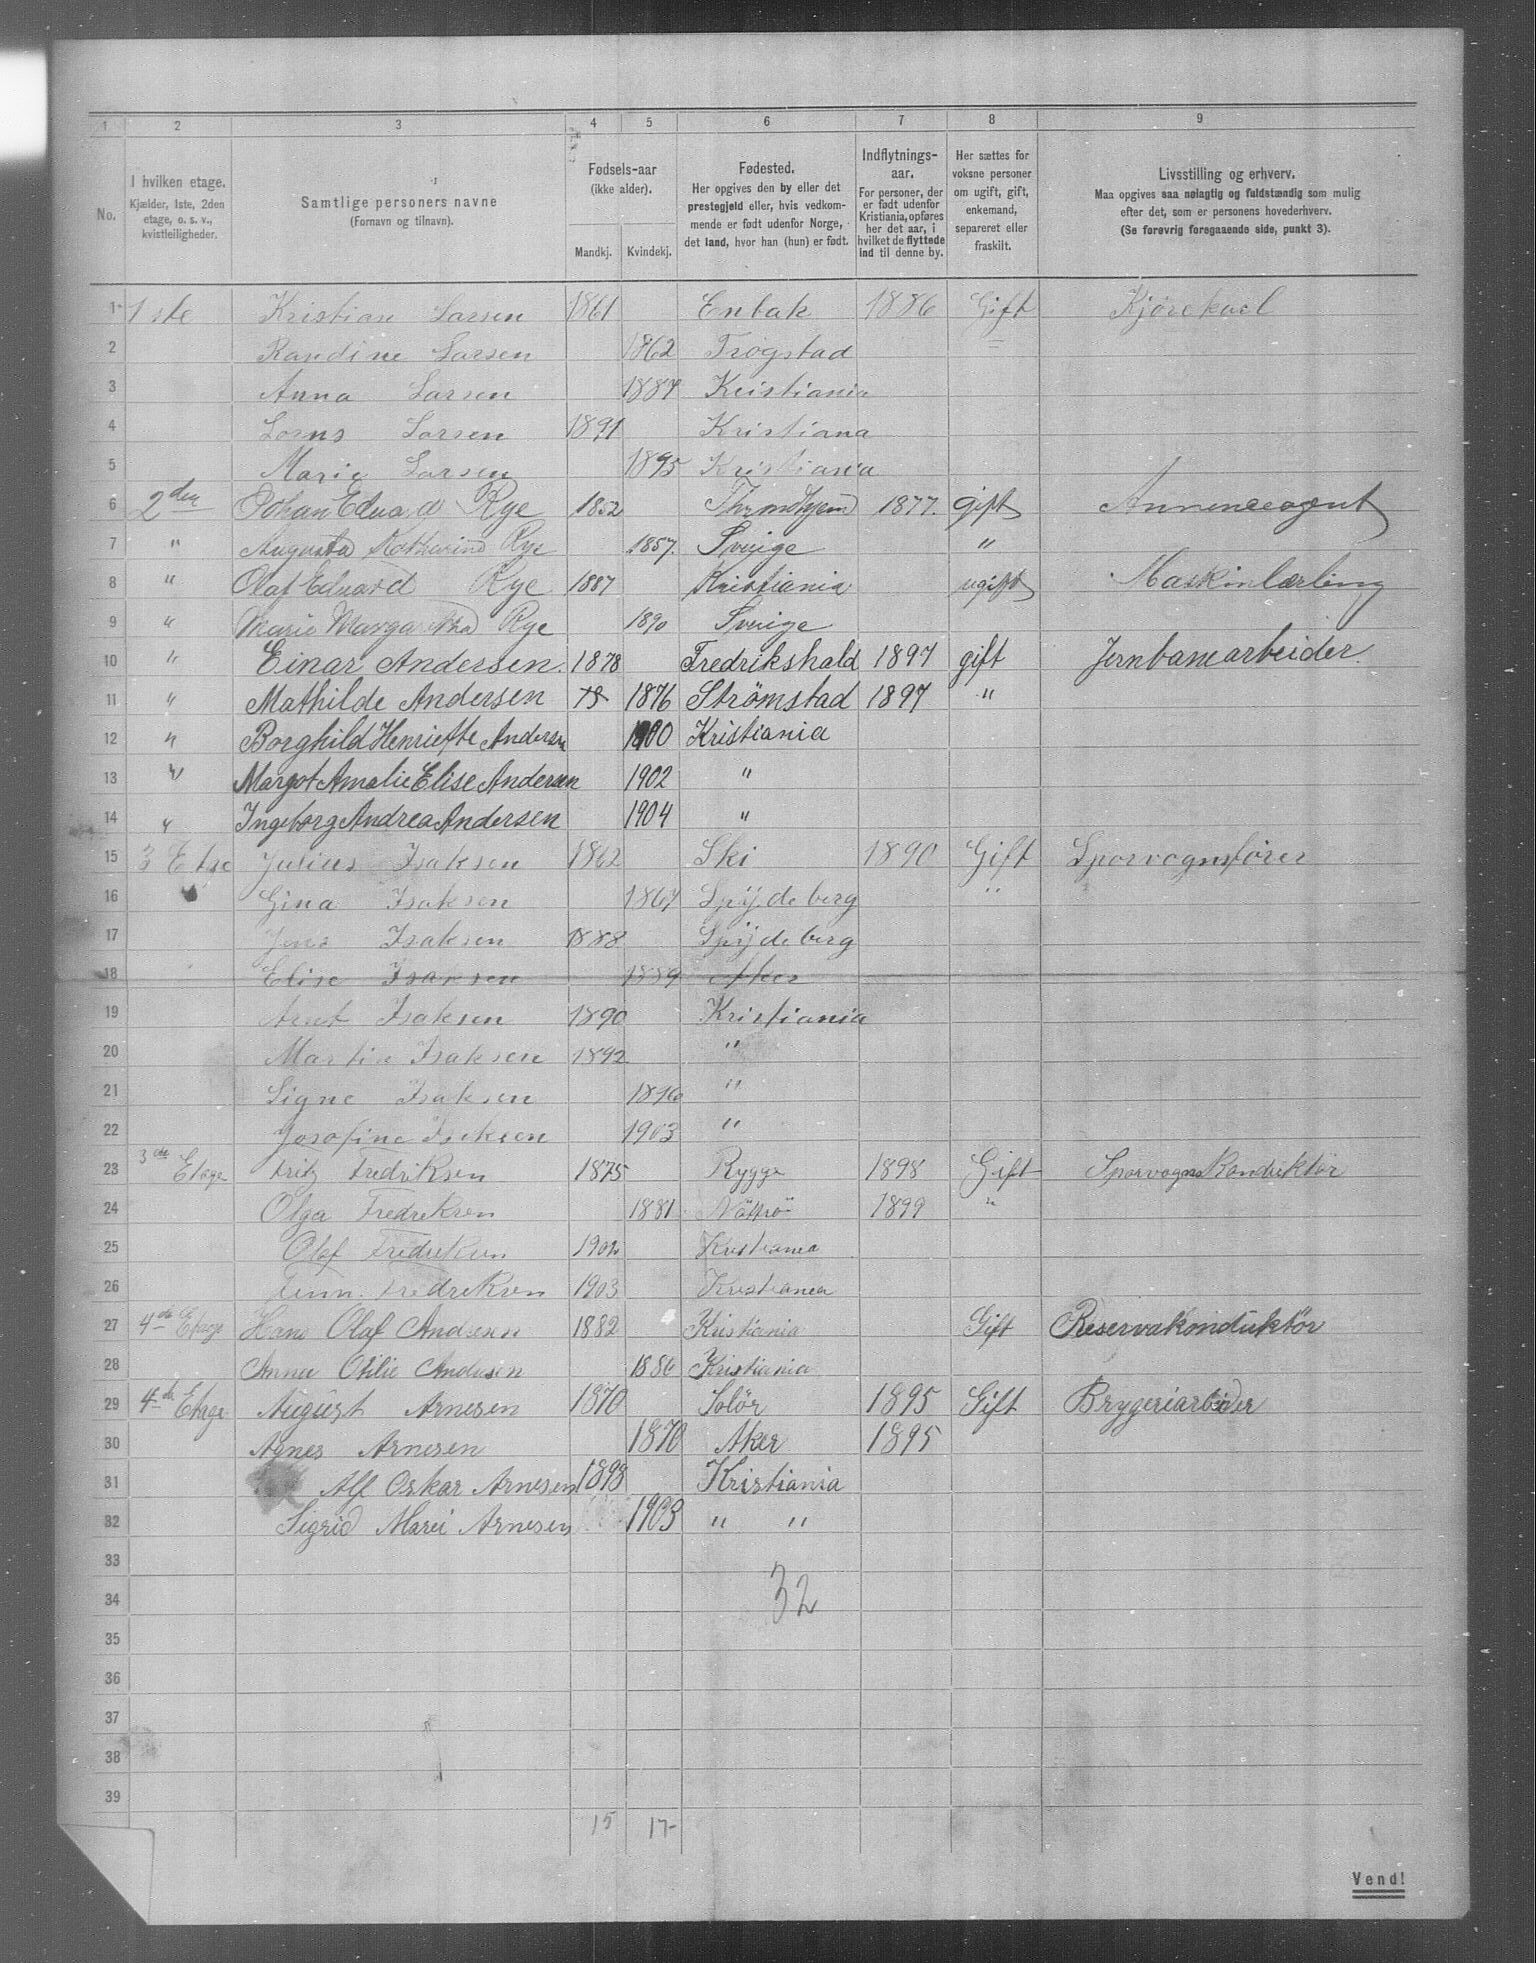 1 2 3 4 5 6 7 8 9
No.
I hvilken etage.
Kjælder, 1ste, 2den
etage, o. s. v.,
kvistleiligheder.
Samtlige personers navne
(Fornavn og tilnavn).
Fødsels-aar
(ikke alder).
Mandkj. Kvindekj.
Fødested.
Her opgives den by eller det
prestegjeld eller, hvis vedkom-
mende er født udenfor Norge,
det land, hvor han (hun) er født.
Indflytnings-
aar.
For personer, der
er født udenfor
Kristiania, opføres
her det aar, i
hvilket de flyttede
ind til denne by.
Her sættes for
voksne personer
om ugift, gift,
enkemand,
separeret eller
fraskilt.
Livsstilling og erhverv.
Maa opgives saa nøiagtig og fuldstændig som mulig
efter det, som er personens hovederhverv.
(Se forøvrig foregaaende side, punkt 3).
1 1ste Kristian Larsen 1861 Enbak 1886 Gift
2 Randine Larsen 1862 Trogstad
3 Anna Larsen 1887 Kristiania
4 Larsen 1891 Kristiana
5 Marie Larsen 1895 Kristiania
6 2den Johan Eduard Rye 1852 Throndhjem 1877. gift
7 " Augusta Katharina Rye 1857. Sverige "
8 " Olaf Eduard Rye 1887 Kristiania ugift Maskinlærling
9 " Marie Margaretha Rye 1890 Sverige
10 " Einar Andersen. 1878 Fredrikshald 1897 gift Jernbanearbeider.
11 " Mathilde Andersen 1876 Strömstad 1897 "
12 " Borghild Henriette Andersen 1900 Kristiania
13 " Margot Amalie Elise Andersen 1902 "
14 " Ingeborg Andrea Andersen 1904 "
15 3 Etge Julius Isaksen 1862 Ski 1890 Gift Sporvognsfører
16 " Gina Isaksen 1867 Spydeberg "
17 Jens Isaksen 1888 Spydeberg
18 Elise Isaksen 1889 Aker
19 Arnt Isaksen 1890 Kristiania
20 Martin Isaksen 1892 "
21 Signe Isaksen 1896 "
22 Josefine Isaksen 1903 "
23 3die Etage Fritz Fredriksen 1875 Rygge 1898 Gift Sporvogns Konduktör
24 Olga Fredriksen 1881 1899 "
25 Olaf Fredriksen 1902 Kristiania
26 Finn Fredriksen 1903 Kristiania
27 4de Etage Hans Olaf Andersen 1882 Kristiania Gift Reservekonduktør
28 Anna Otilie Andersen 1886 Kristiania
29 4de Etage August Arnesen 1870 Solör 1895 Gift Brygeriarbeider
30 Agnes Arnesen 1870 Aker 1895
31 Alf Oskar Arnesen 1898 Kristiania
32 Sigrid Marei Arnesen 1903 " "
33
34 32
35
36
37
38
39
15 17
Vend!